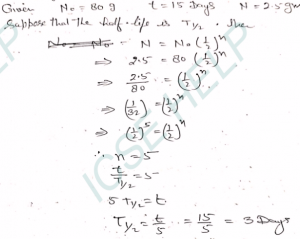 Given No = 80 g t = 15 Days N = 2.5 gm
Suppose that the half-life is T½. then
N = No (1/2)^n
⇒ 2.5 = 80 (1/2)^n
⇒ 2.5/80 = (1/2)^n
⇒ (1/32) = (1/2)^n
⇒ (1/2)^5 = (1/2)^n
∴ n = 5
t/T½ = 5
5 T½ = t
T½ = t/5 = 15/5 = 3 Days
ICSE HELP